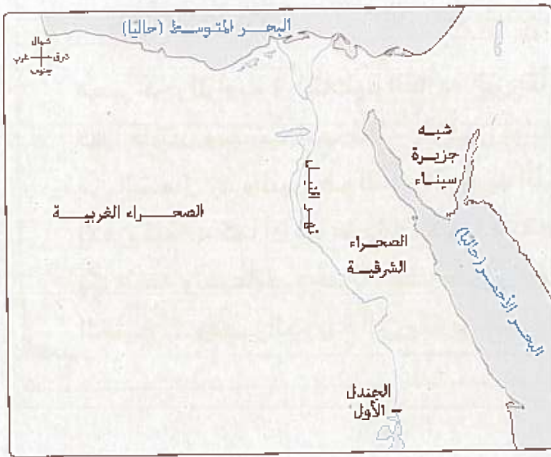 البحر المتوسط (حاليًا)
شمال
شرق
غرب
جنوب
شبه
جزيرة
سيناء
نهر النيل
الصحراء الغربية
الصحراء
الشرقية
البحر الأحمر (حاليًا)
الجندل
الأول